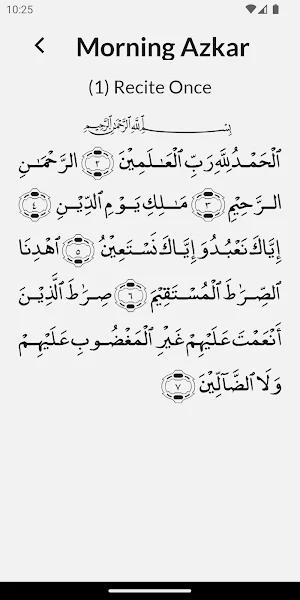 10:25
Morning Azkar
(1) Recite Once
بِسْمِ ٱللَّهِ ٱلرَّحْمَٰنِ ٱلرَّحِيمِ
ٱلْحَمْدُ لِلَّهِ رَبِّ ٱلْعَـٰلَمِينَ ٢ ٱلرَّحْمَـٰنِ
ٱلرَّحِيْمِ ٣ مَـٰلِكِ يَوْمِ ٱلدِّيْنِ ٤
إِيَّاكَ نَعْبُدُ وَإِيَّاكَ نَسْتَعِيْنُ ٥ ٱهْدِنَا
ٱلصِّرَٰطَ ٱلْمُسْتَقِيْمَ ٦ صِرَٰطَ ٱلَّذِيْنَ
أَنْعَمْتَ عَلَيْهِمْ غَيْرِ ٱلْمَغْضُوبِ عَلَيْهِمْ
وَلَا ٱلضَّآلِّيْنَ ٧